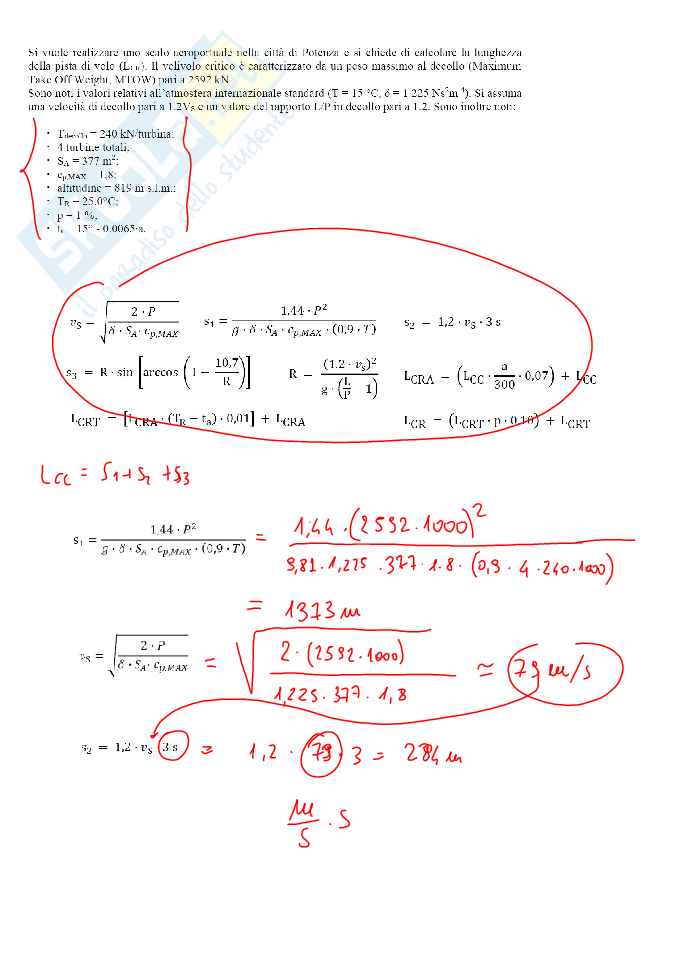 Si vuole realizzare uno scalo aeroportuale nella città di Potenza e si chiede di calcolare la lunghezza
della pista di volo (L). Il velivolo critico è caratterizzato da un peso massimo al decollo (Maximum
Take Off Weight, MTOW) pari a 2592 kN.
Sono noti i valori relativi all'atmosfera internazionale standard (T = 15 °C, δ = 1.225 Ns²m⁻⁴). Si assuma
una velocità di decollo pari a 1.2V_S e un valore del rapporto L/P in decollo pari a 1.2. Sono inoltre noti:
• T = 240 kN/turbina;
• 4 turbine totali;
• S_A = 377 m²;
• c_p,MAX = 1,8;
• altitudine = 819 m s.l.m.;
• T_R = 25.0°C;
• p = 1 %;
• t = 15° - 0.0065·a.
v_S = √(2 · P / (δ · S_A · c_p,MAX)) s₁ = 1,44 · P² / (g · δ · S_A · c_p,MAX · (0,9 · T)) s₂ = 1,2 · v_S · 3 s
s₃ = R · sin [arccos (1 − 10,7/R)] R = (1.2 · v_s)² / (g · (L/P − 1)) L_CRA = (L_CC · a/300 · 0,07) + L_CC
L_CRT = [L_CRA · (T_R − t_a) · 0,01] + L_CRA L_CR = (L_CRT · p · 0,10) + L_CRT
L_CC = S₁ + S₂ + S₃
s₁ = 1,44 · P² / (g · δ · S_A · c_p,MAX · (0,9 · T)) = 1,44 · (2592 · 1000)² / (9,81 · 1,225 · 377 · 1.8 · (0,9 · 4 · 240 · 1000))
= 1373 m
v_S = √(2 · P / (δ · S_A · c_p,MAX)) = √(2 · (2592 · 1000) / (1,225 · 377 · 1,8)) ≃ 79 m/s
s₂ = 1,2 · v_S · 3 s = 1,2 · 79 · 3 = 284 m
m/s · s
SKUOLA.net
il paradiso dello studente